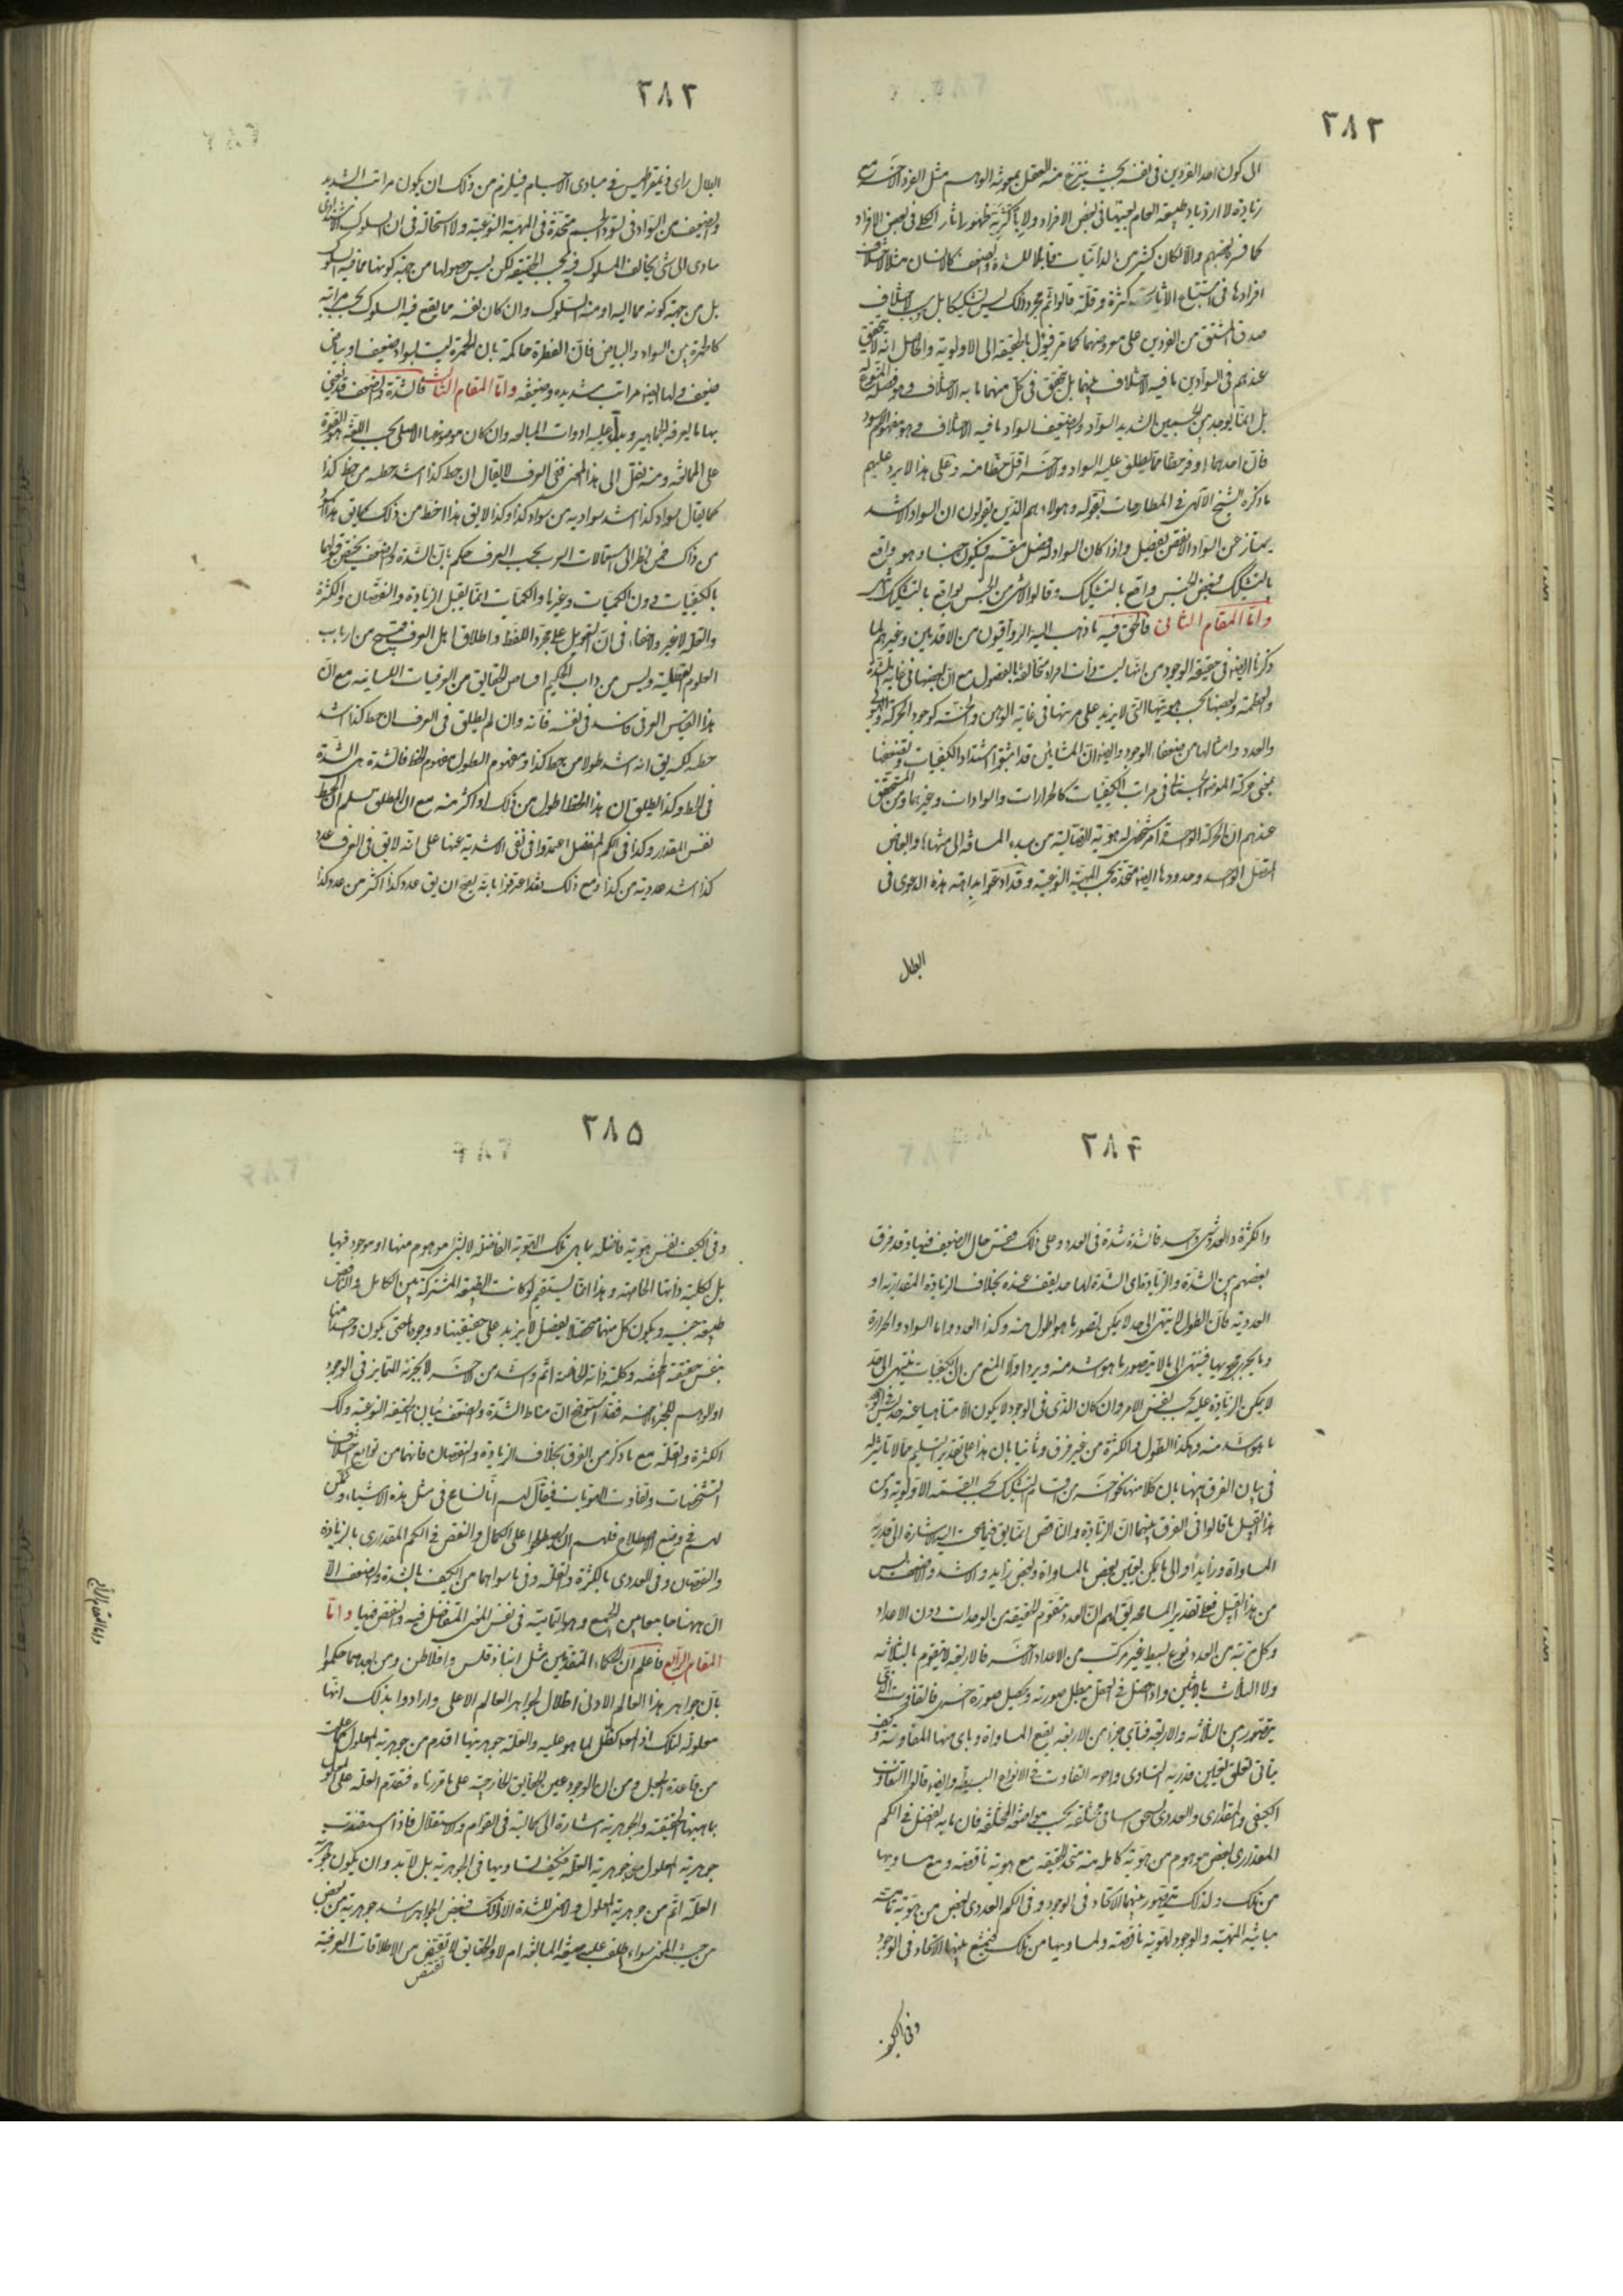 ٢٨٢
الى كون احد الفردين فى نفسه بحيث ينتزع منه العقل بمعونة الوهم مثل الفرد الآخر مع
زيادة لا ازدياد طبيعة العام بعينها فى بعض الافراد ولا باكثرية ظهور اثار الكلى فى بعض الافراد
كما فسره بعضهم والا لكان كثير من الذاتيات قابلا للشدة والضعف كالانسان مثلا لاختلاف
افرادها فى استتباع الاثار كثرة وقلة قالوا ثم مجرد ذلك ليس تشكيكا بل بسبب اختلاف
صدق المشتق من الفردين على معروضهما كما مر فيؤل بالحقيقة الى الاولوية والحاصل انه لا يتحقق
عندهم فى السوادين ما فيه الاختلاف بينهما بل يتحقق فى كل منهما ما به الاختلاف وهو فصله المنوع له
بل انما يوجد بين الجسمين الشديد السواد والضعيف السواد ما فيه الاختلاف وهو مفهوم الاسود
فان احدهما اوفر حظا مما يطلق عليه السواد والآخر اقل حظا منه وعلى هذا لا يرد عليهم
ما ذكره الشيخ الالهى فى المطارحات بقوله وهولاء هم الذين يقولون ان السواد الاشد
يمتاز عن السواد الانقص بفصل واذا كان السواد له فصل مقسم فيكون جنسا وهو واقع
بالتشكيك فبعض الجنس واقع بالتشكيك وقالوا لا شئ من الجنس بواقع بالتشكيك
واما المقام الثانى فالحق فيه ما ذهب اليه الرواقيون من الاقدمين وغيرهم لما
ذكرنا ايضا فى حقيقة الوجود من انها ليست ذات افراد متخالفة بالفصول مع ان بعضها فى غاية الشدة
والعظمة وبعضها بحسب هويتها التى لا يزيد على مرتبتها فى غاية الوهن والخسة كوجود الحركة والهيولى
والعدد وامثالها من ضعفاء الوجود وايضا ان المشائين قد اثبتوا اشتداد الكيفيات وتضعفها
بمعنى حركة الموضوع الجسمانى فى مراتب الكيفيات كالحرارات والسوادات وغيرهما ومن المتحقق
عندهم ان الحركة الواحدة امر شخصى له هوية اتصالية من مبدء المسافة الى منتهاها وابعاض
المتصل الواحد وحدوده ايضا متحدة بحسب المهية النوعية وقد ادعوا بداهة هذه الدعوى فى
ابطال
٢٨٣
ابطال راى ذيمقراطيس فى مبادى الاجسام فيلزم من ذلك ان يكون مراتب الشديد
والضعيف من السواد فى تسود الجسم متحدة فى المهية النوعية ولا استحالة فى ان السلوك الاشتدادى
يتادى الى شئ يخالف المسلوك فيه بحسب الحقيقة لكن ليس حصولها من جهة كونها مما فيه السلوك
بل من جهة كونه مما اليه او منه السلوك وان كان نفسه مما يقع فيه السلوك بحسب مراتبه
كالحمرة بين السواد والبياض فان الفطرة حاكمة بان الحمرة ليست سوادا ضعيفا او بياضا
ضعيفا ولها ايضا مراتب شديدة وضعيفة واما المقام الثالث فالشدة والضعف قد يعنى
بها ما يعرفه الجماهير ويدل عليه ادوات المبالغة وان كان موضوعها الاصلى بحسب اللغة هو القوة
على الممانعة ومنه نقل الى هذا المعنى ففى العرف لا يقال ان خط كذا اشد خطية من خط كذا
كما يقال سواد كذا اشد سوادية من سواد كذا وكذا لا يق هذا اخط من ذلك كما يق هذا اسود
من ذاك فمن نظر الى استعمالات العرب بحسب العرف حكم بان الشدة والضعف يختص قبولهما
بالكيفيات دون الكميات وغيرها والكميات انما يقبل الزيادة والنقصان والكثرة
والقلة لا غير ولا خفاء فى ان التعويل على مجرد اللفظ واطلاق اهل العرف قبيح من ارباب
العلوم العقلية وليس من داب الحكيم اقتناص الحقايق من العرفيات اللسانية مع ان
هذا القياس العرفى فاسد فى نفسه فانه وان لم يطلق فى العرف ان خط كذا اشد
خطية لكنه يق انه اشد طولا من خط كذا ومفهوم الطول مفهوم الخط فالشدة هى الشدة
فى الخط وكذا يطلق ان هذا الخط اطول من ذلك او اكثر منه مع ان المطلق تسلم ان الخط
نفس المقدار وكذا فى الكم المنفصل اعتمدوا فى نفى الاشدية عنها على انه لا يق فى العرف عدد
كذا اشد عددية من كذا ومع ذلك فقد اعترفوا بانه يصح ان يق عدد كذا اكثر من عدد كذا
٢٨٤
والكثرة والعدد شئ واحد فالشدة شدة فى العدد وعلى ذلك فقس حال الضعيف فيها وقد فرق
بعضهم بين الشدة والزيادة بان الشدة لها حد يقف عنده بخلاف الزيادة المقدارية او
العددية فان الطول لا ينتهى الى حد لا يمكن تصور ما هو اطول منه وكذا العدد واما السواد والحرارة
وما يجرى مجريها فينتهى الى ما لا يتصور ما هو اشد منه ويرد اولا المنع من ان الكيفيات تنتهى الى حد
لا يمكن الزيادة عليه بحسب نفس الامر وان كان الذى فى الوجود لا يكون الا متناهيا عنه حد ليس فى الوجود
ما هو اشد منه وهكذا الطول والكثرة من غير فرق وثانيا بان هذا على تقدير التسليم مما لا تاثير له
فى بيان الفرق بينهما بان كلا منهما نحو اخر من اقسام التشكيك بحسب القسمة الاولوية ومن
هذا القبيل ما قالوا فى الفرق بينهما ان الزيادة والناقص انما يق فيما يمكن اليه الاشارة الى قدر به
المساواة وزايد او الى ما يمكن يقاس بعض بالمساواة وبعض زايد والاشد والاضعف ليس
من هذا القبيل فعلى تقدير المسامحة يق لهم ان العدد متقوم للحقيقة من الوحدات دون الاعداد
وكل مرتبة من العدد نوع بسيط غير مركب من الاعداد الاخر فالاربعة لا يتقوم بالثلثة
ولا الثلاث بالاثنين واذا حصل فى العقل بطل صورته وتحصل صورة اخرى فالتفاوت الذى
يتصور بين الثلاثة والاربعة فباى جزء من الاربعة يقع المساواة وباى منها المفاوتة وكيف
يتاتى تعلق تعيين قدر به التساوى واخر به التفاوت فى الانواع البسيطة وايضا قالوا التفاوت
الكيفى والمقدارى والعددى يستحق اسامى مختلفة بحسب مواضعه المختلفة فان ما به الفضل فى الكم
المقدارى بعض موهوم من هوية كاملة منه متحد الحقيقة مع هوية ناقصة ومع مساويها
من تلك ولذلك يتصور بينهما الاتحاد فى الوجود وفى الكم العددى بعض من هوية تامة
مباينة المهية والوجود لهوية ناقصة ولمساويها من تلك فيمتنع بينها الاتحاد فى الوجود
وفى الكيف
٢٨٥
وفى الكيف نفس هوية فاضلة بما هى تلك الهوية الفاضلة لا بشئ موهوم منها او موجود فيها
بل بكلية ذاتها الخاصة وهذا انما يستقيم لو كانت الطبيعة المشتركة بين الكامل والناقص
طبيعة جنسية ويكون كل منهما متحصلا بفصل لا يزيد على حقيقتها ووجودها حتى يكون واحد منها
بنفس حقيقته المختصة وكلية ذاته الخاصة اتم واشد من اخر لا بجزئه المتمايز فى الوجود
او الوهم للجزء الاخر فقد استوضح ان مناط الشدة والضعف تباين الحقيقة النوعية وكك
الكثرة والقلة مع ما ذكر من الفرق بخلاف الزيادة والنقصان فانهما من توابع اختلاف
التشخصات وتفاوت الهويات فيقال لهم انا لساع فى مثل هذه الاشياء وليس
لهم فى وضع الاصطلاح فلهم ان يصطلحوا على الكمال والنقص فى الكم المقدارى بالزيادة
والنقصان وفى العددى بالكثرة والقلة وفى ما سواهما من الكيف بالشدة والضعف الا
ان ههنا جامعا بين الجميع وهو التمامية فى نفس المعنى المتفاضل فيه والنقص فيها واما
المقام الرابع فاعلم ان الحكماء المتقدمين مثل انباذقلس وافلاطن ومن بعدهما حكموا
بان جواهر هذا العالم الادنى اظلال لجواهر العالم الاعلى وارادوا بذلك انها
معلولة لتلك اذ المعلول كظل لما هو عليه والعلة جوهريتها اقدم من جوهرية المعلول كما علمت
من قاعدة الجعل ومن ان الوجود عين الحقايق الخارجية على ما قررناه فتقدم العلة على المعلول
بماهيتها الحقيقية والجوهرية اشارة الى كمالية فى القوام والاستقلال فاذا استفيدت
جوهرية المعلول من جوهرية العلة فكيف تساويها فى الجوهرية بل لا بد وان يكون جوهرية
العلة اتم من جوهرية المعلول ولا معنى للشدة الا ذلك فبعض الجواهر اشد جوهرية من بعض
من حيث المعنى سواء اطلقت عليه صيغة المبالغة ام لا والحقايق لا تقتنص من الاطلاقات العرفية
تقتنص
واما المقام الرابع